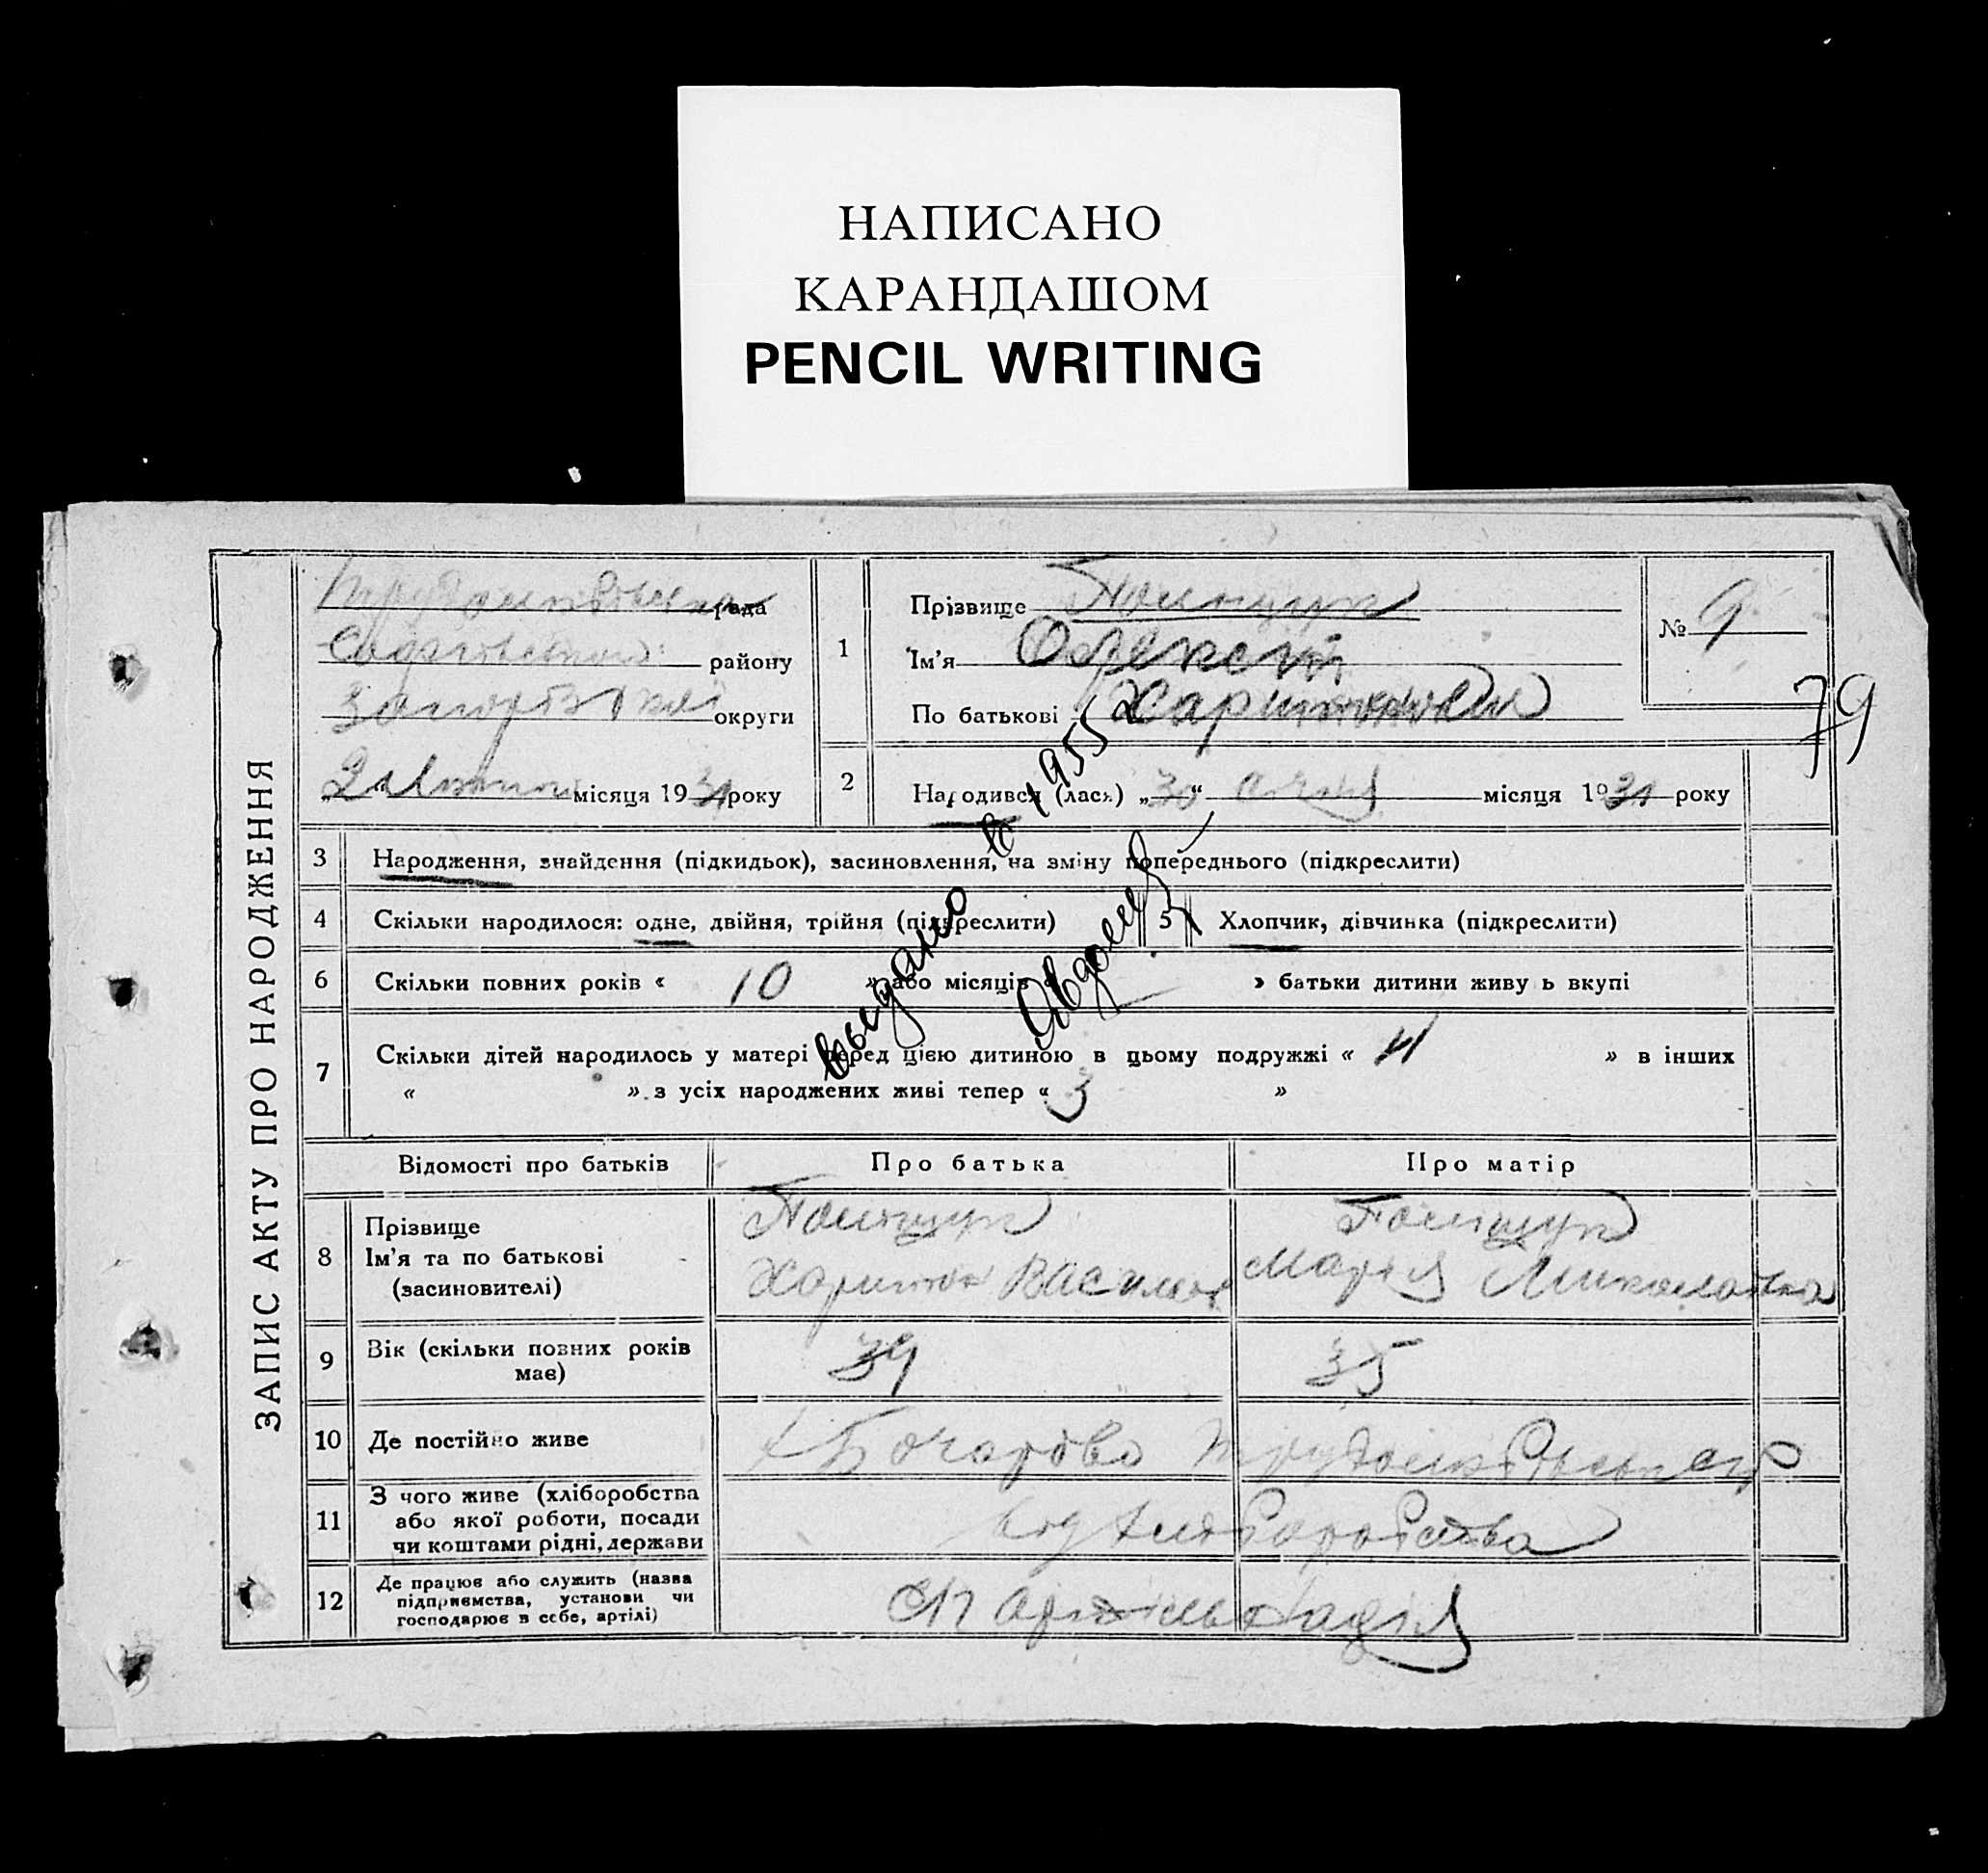 НАПИСАНО
КАРАНДАШОМ
PENCIL WRITING
ЗАПИС АКТУ ПРО НАРОДЖЕННЯ
рада
району
округи
2 Лютого місяця 1931 року
1
Прізвище Поліщук
Ім'я Олексій
По батькові Харитонович
№ 9
79
2
Народився (лася) „30“ січня місяця 1931 року
3 Народження, знайдення (підкидьок), засиновлення, на зміну попереднього (підкреслити)
4 Скільки народилося: одне, двійня, трійня (підкреслити)
5 Хлопчик, дівчинка (підкреслити)
6 Скільки повних років « 10 » або місяців « — » батьки дитини живу ь вкупі
7 Скільки дітей народилось у матері перед цією дитиною в цьому подружжі « 4 » в інших
« » з усіх народжених живі тепер « 3 »
выдано в 1955 г
Відомості про батьків
Про батька
Про матір
8
Прізвище
Ім'я та по батькові
(засиновителі)
Поліщук
Харитон Васильов
Поліщук
Марія Миколаївна
9
Вік (скільки повних років
має)
39
35
10 Де постійно живе
х Бочарово
11
З чого живе (хліборобства
або якої роботи, посади
чи коштами рідні, держави
від хліборобства
12
Де працює або служить (назва
підприємства, установи чи
господарює в себе, артілі)